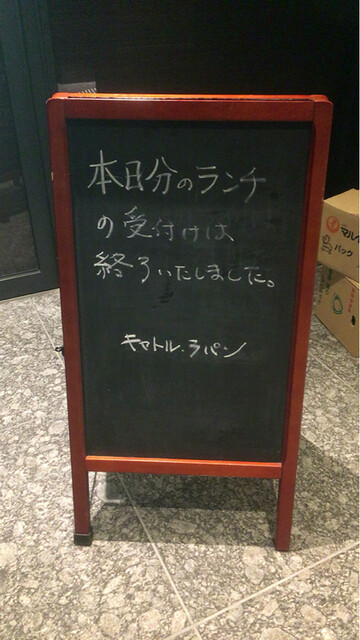 本日分のランチ
の受付けは
終了いたしました。
キャトル・ラパン
マルイ
パック